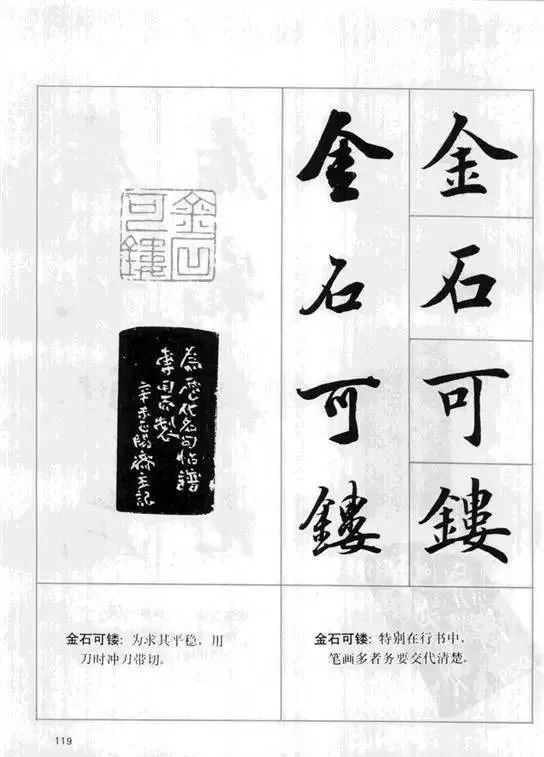 金石可鏤
金石可鏤
金石
可鏤
為歷代名句帖譜
專用而製
辛未正陽齋主記
金石可镂：为求其平稳，用
刀时冲刀带切。
金石可镂：特别在行书中，
笔画多者务要交代清楚。
119